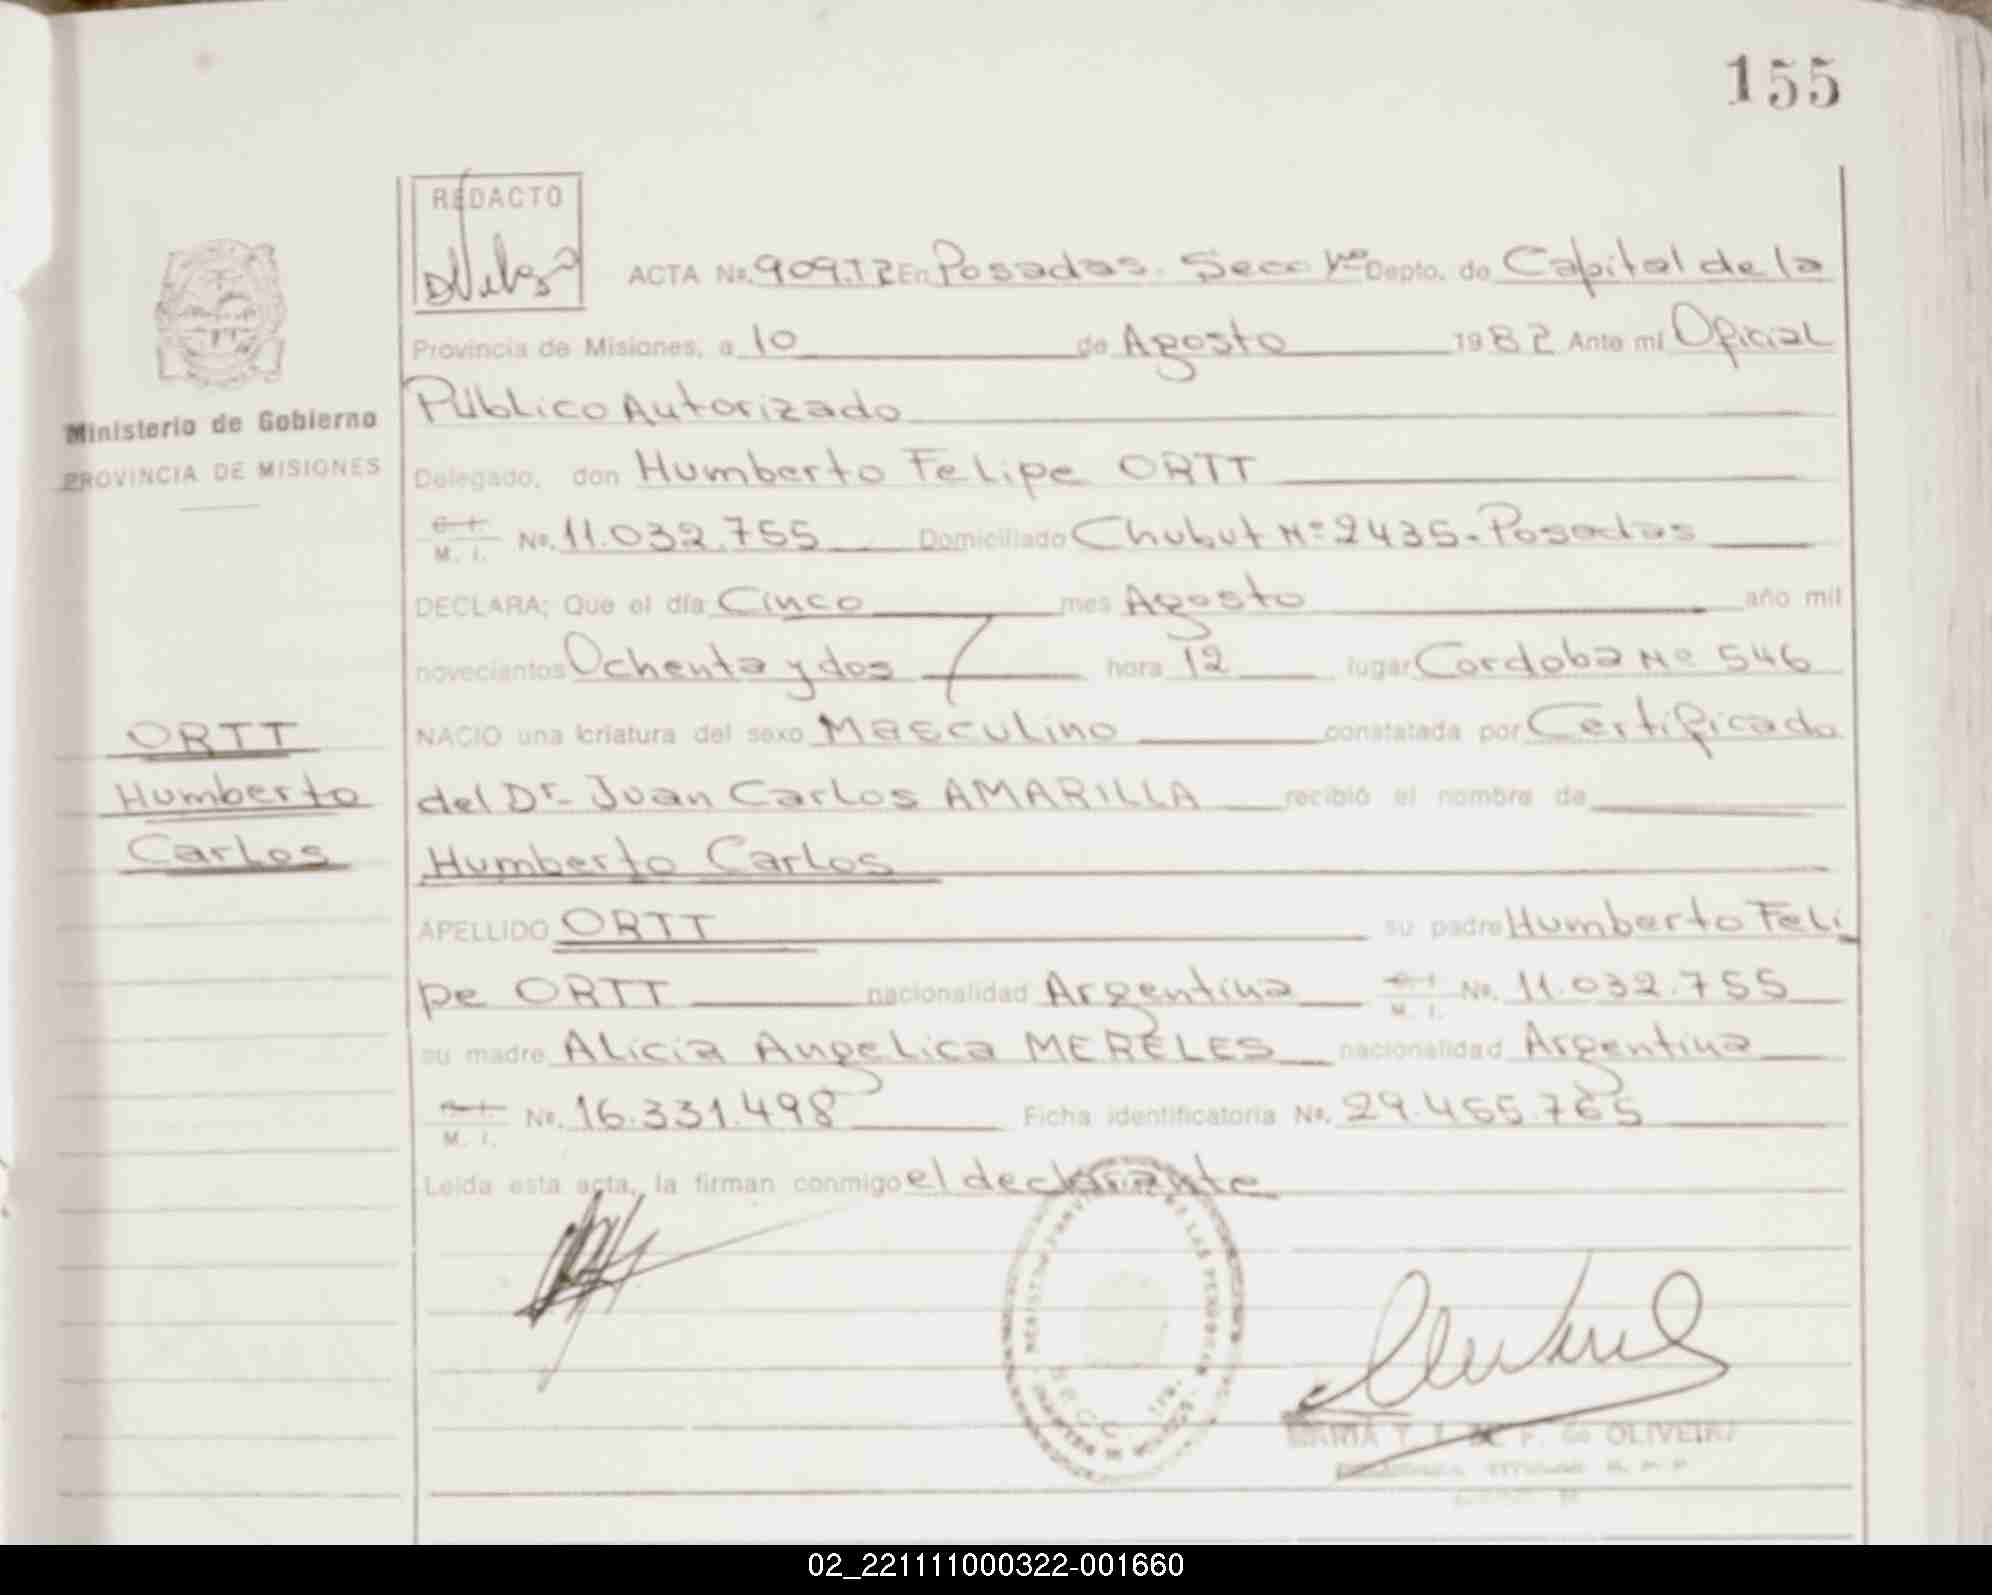 155
REDACTO
ACTA No. 909.T2 En Posadas. Secc 1ra Depto. de Capital de la
Provincia de Misiones, a 10 de Agosto 1982 Ante mí Oficial
Ministerio de Gobierno
PROVINCIA DE MISIONES
Público Autorizado
Delegado, don Humberto Felipe ORTT
C. I. M. I. No. 11.032.755 Domiciliado Chubut Nº 2435. Posadas
DECLARA; Que el día Cinco mes Agosto año mil
noveciantos Ochenta y dos hora 12 lugar Cordoba Nº 546
NACIO una criatura del sexo Masculino constatada por Certificado
del Dr. Juan Carlos AMARILLA recibió el nombre de
Humberto Carlos
ORTT
Humberto
Carlos
APELLIDO ORTT su padre Humberto Feli
pe ORTT nacionalidad Argentina C. I. M. I. No. 11.032.755
su madre Alicia Angelica MERELES nacionalidad Argentina
C. I. M. I. No. 16.331.498 Ficha identificatoria No. 29.455.765
Leida esta acta, la firman conmigo el declarante
DE LAS PERSONAS
SECC. 1ra.
MARIA T. F. de OLIVEIRA
02_221111000322-001660